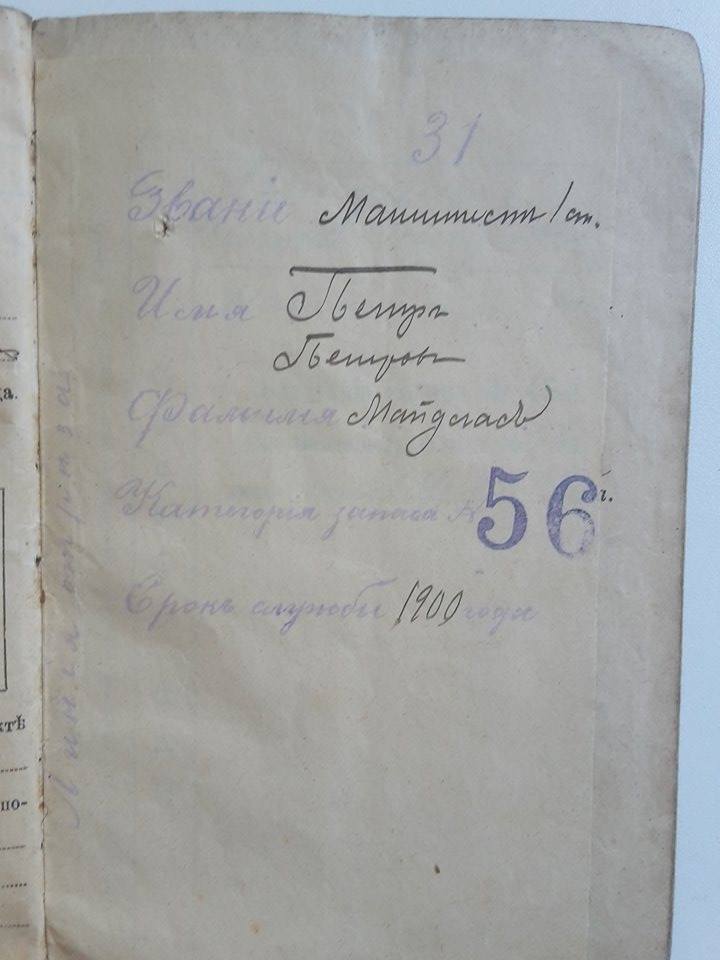 31
Званіе Машинистъ 1 ст.
Имя Петръ
Петровъ
Фамилія Майдласъ
Категорія запаса № 56 г.
Срокъ службы 1900 года
Линія отрѣза
да.
ктѣ
по-